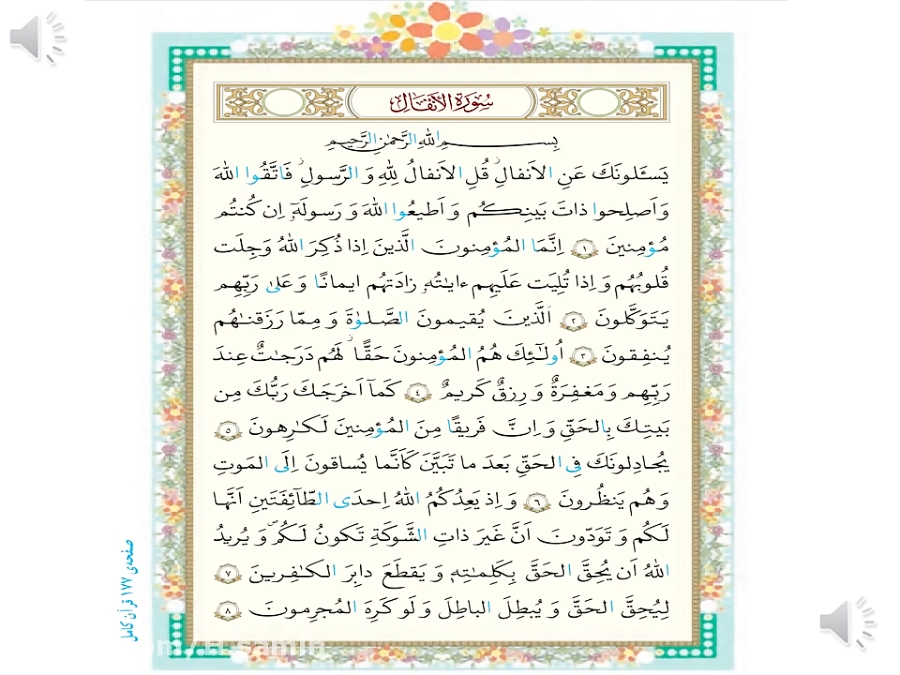 سُورَةُ الاَنفالِ
بِسمِ اللهِ الرَّحمٰنِ الرَّحیمِ
یَسـَٔلونَكَ عَنِ الاَنفالِۖ قُلِ الاَنفالُ لِلّٰهِ وَ الرَّسولِۖ فَاتَّقُوا اللهَ
وَ اَصلِحوا ذاتَ بَینِکُم وَ اَطیعُوا اللهَ وَ رَسولَهٗۤ اِن کُنتُم
مُؤمِنینَ ١ اِنَّمَا المُؤمِنونَ الَّذینَ اِذا ذُکِرَ اللهُ وَجِلَت
قُلوبُهُم وَ اِذا تُلِیَت عَلَیهِم ءایٰتُهٗ زادَتهُم ایمانًا وَ عَلیٰ رَبِّهِم
یَتَوَکَّلونَ ٢ اَلَّذینَ یُقیمونَ الصَّلوٰةَ وَ مِمّا رَزَقنٰهُم
یُنفِقونَ ٣ اُولٰٓئِكَ هُمُ المُؤمِنونَ حَقًّاۚ لَهُم دَرَجٰتٌ عِندَ
رَبِّهِم وَ مَغفِرَةٌ وَ رِزقٌ کَریمٌ ٤ کَماۤ اَخرَجَكَ رَبُّكَ مِن
بَیتِكَ بِالحَقِّ وَ اِنَّ فَریقًا مِنَ المُؤمِنینَ لَکٰرِهونَ ٥
یُجادِلونَكَ فِی الحَقِّ بَعدَ ما تَبَیَّنَ کَاَنَّما یُساقونَ اِلَی المَوتِ
وَ هُم یَنظُرونَ ٦ وَ اِذ یَعِدُکُمُ اللهُ اِحدَی الطّآئِفَتَینِ اَنَّها
لَکُم وَ تَوَدّونَ اَنَّ غَیرَ ذاتِ الشَّوکَةِ تَکونُ لَکُم وَ یُریدُ
اللهُ اَن یُحِقَّ الحَقَّ بِکَلِمٰتِهٖ وَ یَقطَعَ دابِرَ الکٰفِرینَ ٧
لِیُحِقَّ الحَقَّ وَ یُبطِلَ الباطِلَ وَ لَو کَرِهَ المُجرِمونَ ٨
صفحه‌ی ۱۷۷ قرآن کامل